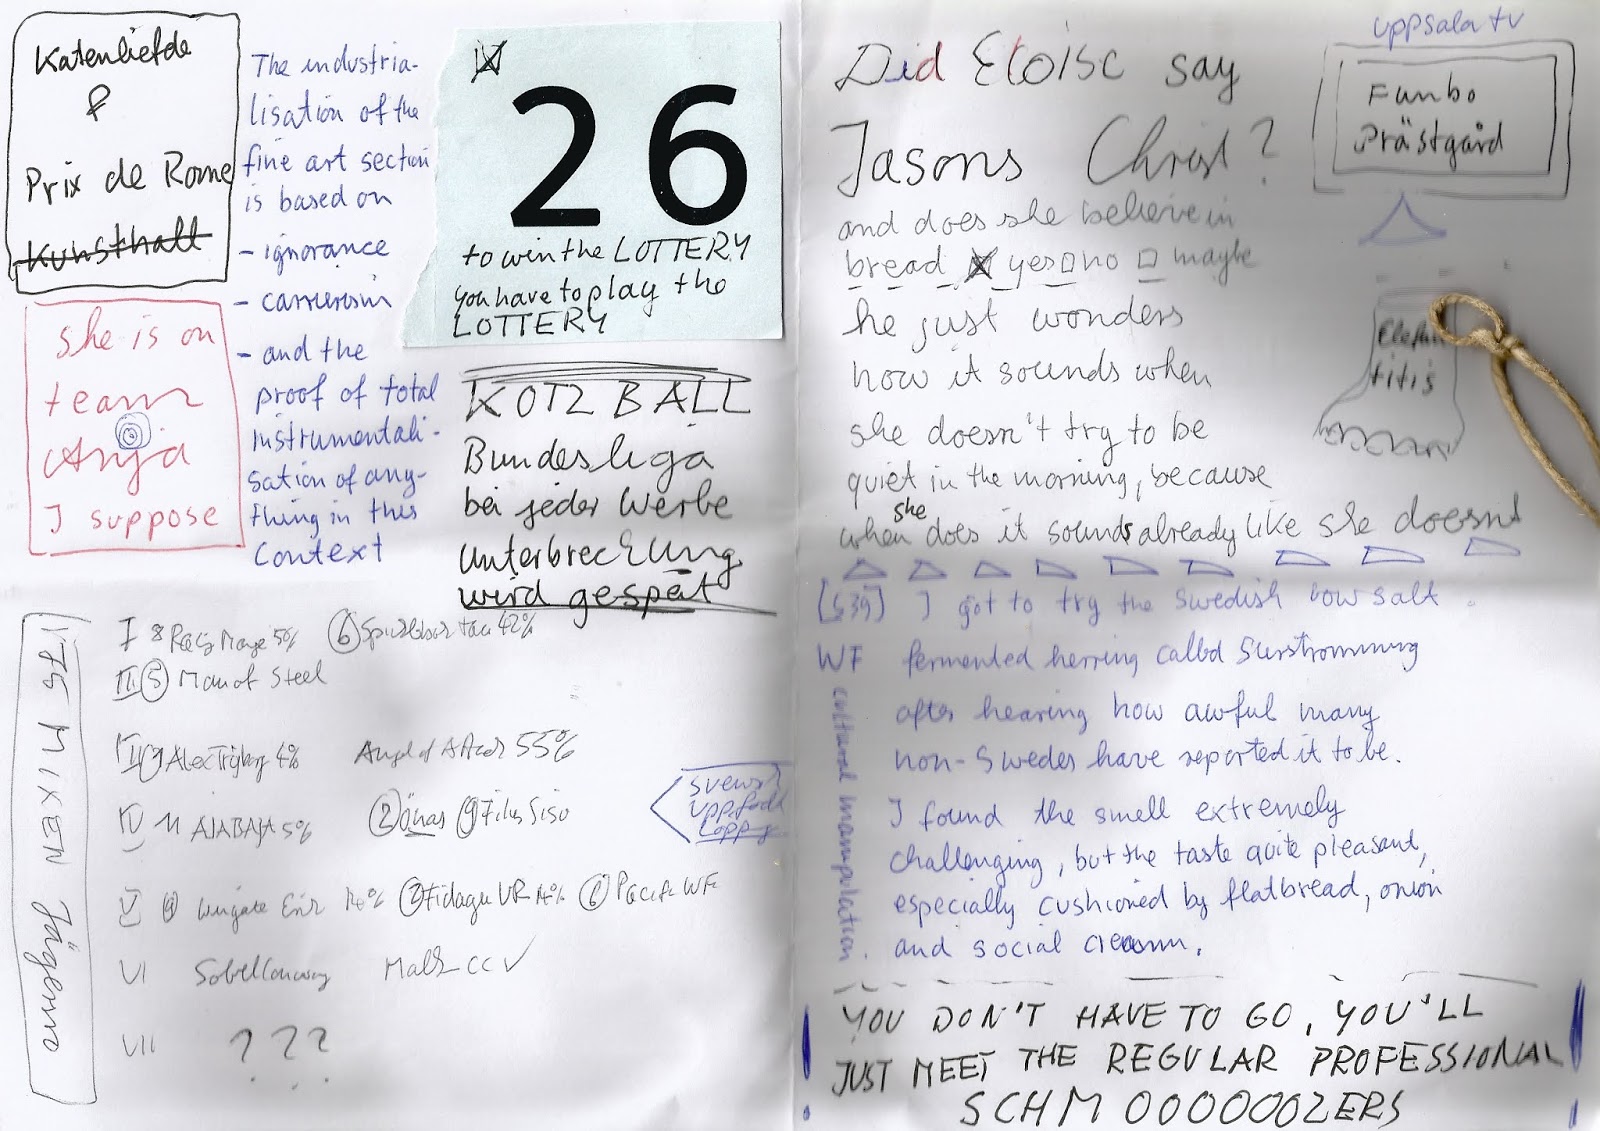 Katenliefde
&
Prix de Rome
Kunsthall
She is on
team
Anja
I suppose
The industria-
lisation of the
fine art section
is based on
- ignorance
- carrierism
- and the
proof of total
instrumentali-
sation of any-
thing in this
context
26
to win the LOTTERY
you have to play the
LOTTERY
KOTZBALL
Bundesliga
bei jeder Werbe
unterbrechung
wird gespät
V75 MIXEN Jägerro
I 8 5% 6 42%
III 5 Man of Steel
4% Angel of 55%
IV 11 AIABAJA 5% 2 önas 9
V 9 Wingate 14% 2 Fidague UR 14% 6 Pacific WF
VI Sobel Conway CC ✓
VII ? ? ?
Svensk
uppfödd
Did Eloise say
Jasons Christ?
and does she believe in
bread ☒ yes ☐ no ☐ maybe
he just wonders
how it sounds when
she doesn't try to be
quiet in the morning, because
when she does it sounds already like she doesn't
uppsala tv
Funbo
Prästgård
titis
[S39] I got to try the Swedish low salt
WF fermented herring called Surströmming
after hearing how awful many
non-Swedes have reported it to be.
I found the smell extremely
challenging, but the taste quite pleasant,
especially cushioned by flatbread, onion
and social cream.
cultural manipulation.
YOU DON'T HAVE TO GO, YOU'LL
JUST MEET THE REGULAR PROFESSIONAL
SCHMOOOOOOZERS